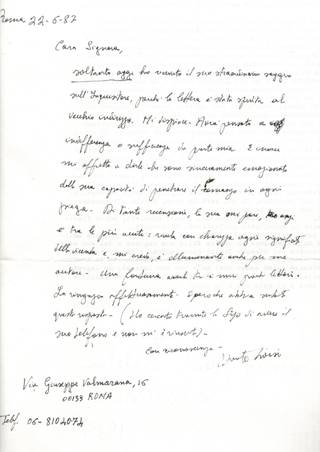 Roma 22-6-87
Cara Signora,
soltanto oggi ho ricevuto il suo straordinario saggio
sull'Inquisitore, perché la lettera è stata spedita al
vecchio indirizzo. Mi dispiace. Avrà pensato a
indifferenza o sufferenza da parte mia. E invece
mi affretto a dirle che sono sinceramente emozionato
dalla sua capacità di penetrare il romanzo in ogni
piega. Di tante recensioni, la sua mi pare,
è tra le più acute: svela con chiarezza ogni significato
della vicenda e, mi creda, è illuminante anche per me
autore. Una fortuna averla tra i miei pochi lettori.
La ringrazio affettuosamente. Spero che abbia
questa risposta. (Ho cercato tramite la Sip di avere il
suo telefono e non mi è riuscito).
Con riconoscenza.
Via Giuseppe Valmarana, 16
00139 ROMA
Telef. 06-8104074